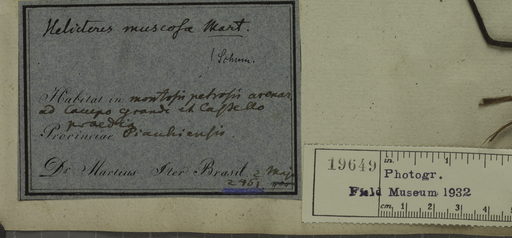 Helicteres muscosa Mart.
! Schum.
Habitat in montosis petrosis arenos.
ad Campo grande et Castello
praedia
Provinciae Piauhiensis.
Dr. Martius Iter Brasil. 2 Maj.
2461
19649
in. 1
Photogr.
Field Museum 1932
cm. 1 2 3 4 5